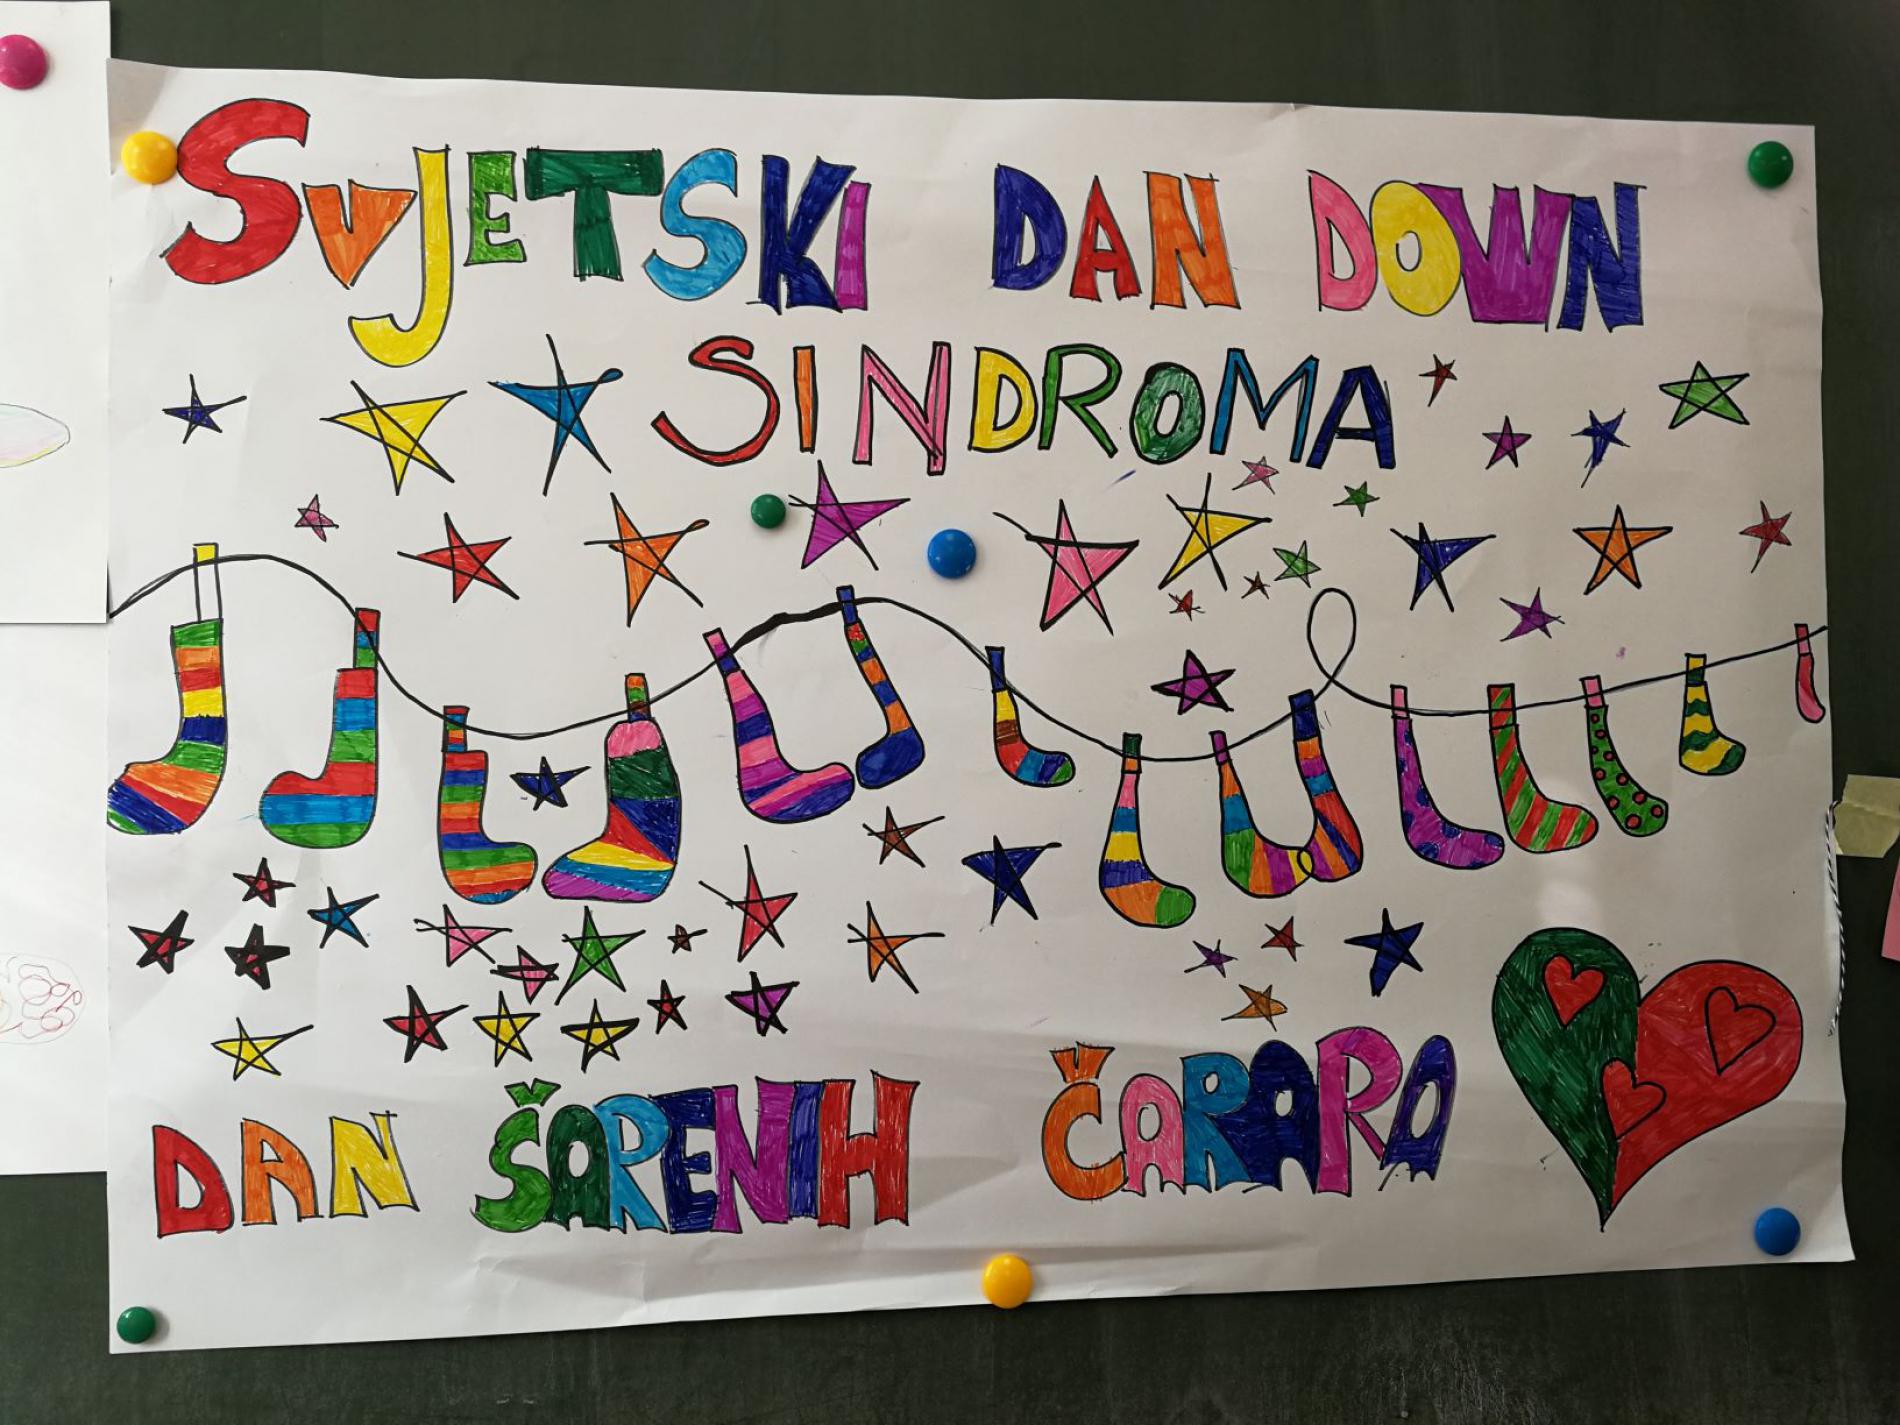 SVJETSKI DAN DOWN
SINDROMA
DAN ŠARENIH ČARAPA